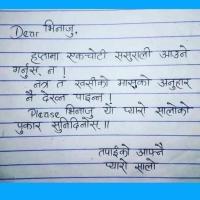 Dear भिनाजु,
हप्तामा एकचोटी ससुराली आउने
गर्नुस न !
नत्र त खसीको मासुको अनुहार
नै देख्न पाइन्न !
Please भिनाजु यो प्यारो सालोको
पुकार सुनिदिनोस् ॥
तपाईको आफ्नै
प्यारो सालो